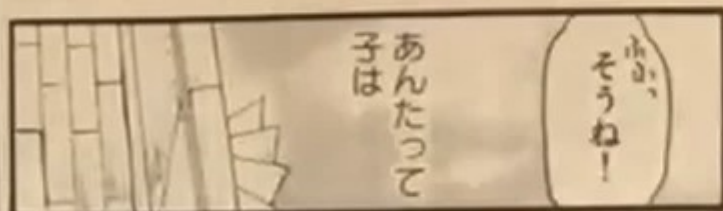 ふふっ
そうね!
あんたって
子は